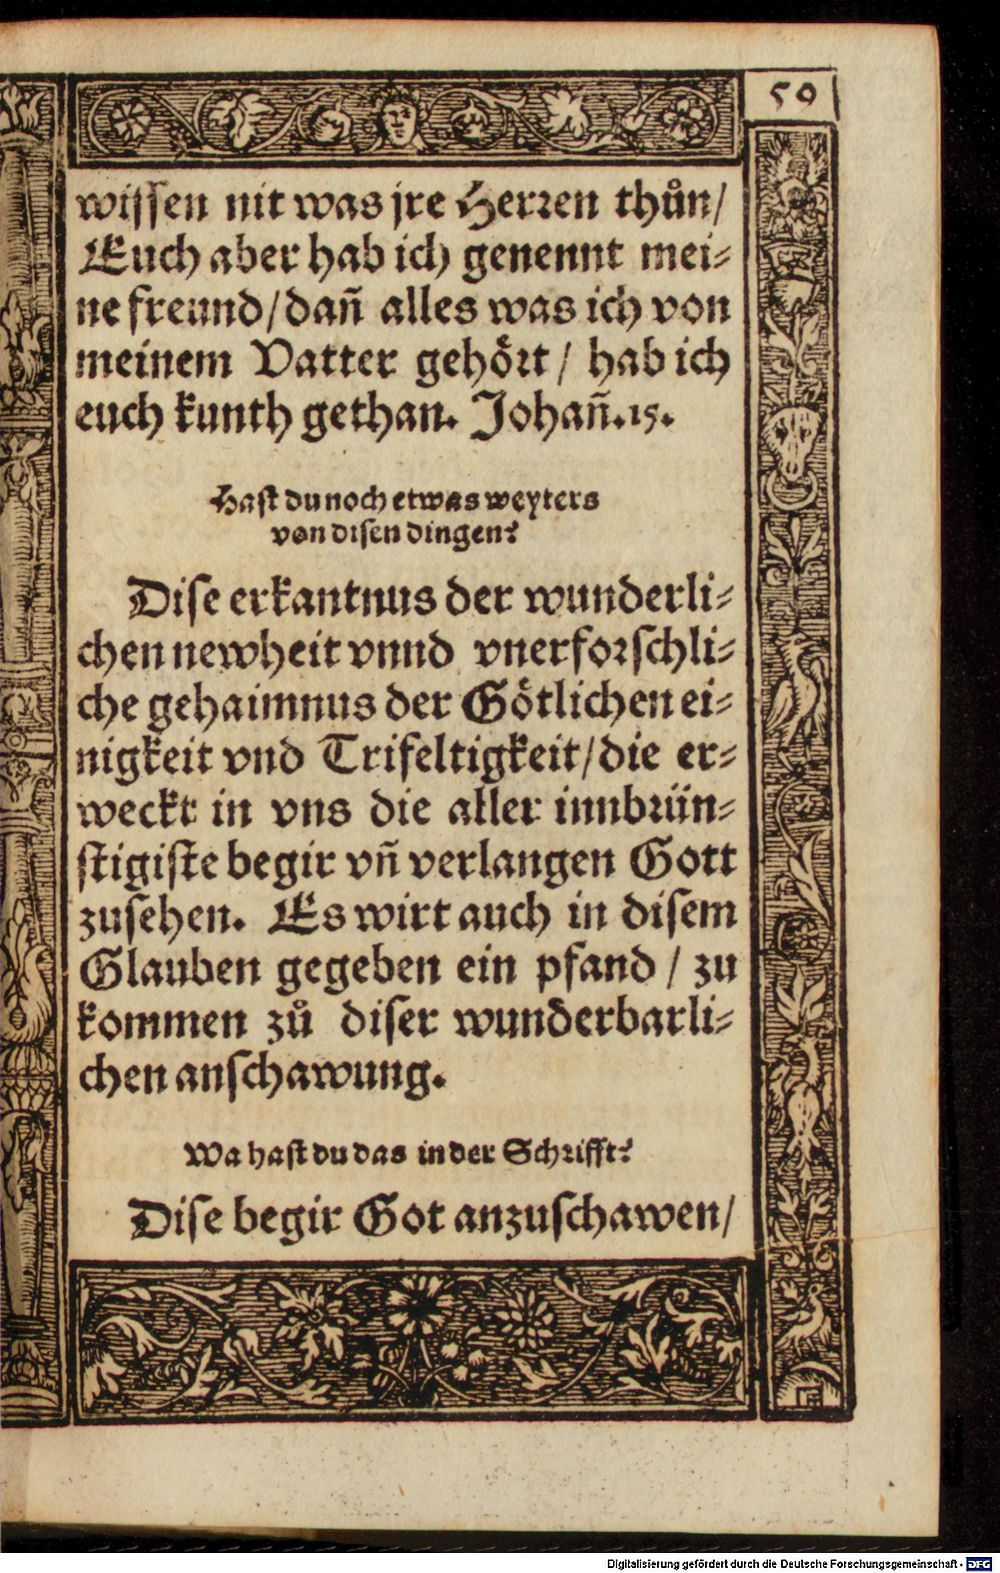 50
wissen nit was jre Herren thůn/
Euch aber hab ich genennt mei⸗
ne freund/dañ alles was ich von
meinem Vatter gehört/ hab ich
euch kunth gethan. Johañ.15.
Hast du noch etwas weyters
von disen dingen?
Dise erkantnus der wunderli⸗
chen newheit vnnd vnerforschli⸗
che gehaimnus der Götlichen ei⸗
nigkeit vnd Trifeltigkeit/die er⸗
weckt in vns die aller innbrün⸗
stigiste begir vñ verlangen Gott
zusehen. Es wirt auch in disem
Glauben gegeben ein pfand/ zu
kommen zů diser wunderbarli⸗
chen anschawung.
Wa hast du das in der Schrifft?
Dise begir Got anzuschawen/
Digitalisierung gefördert durch die Deutsche Forschungsgemeinschaft - DFG